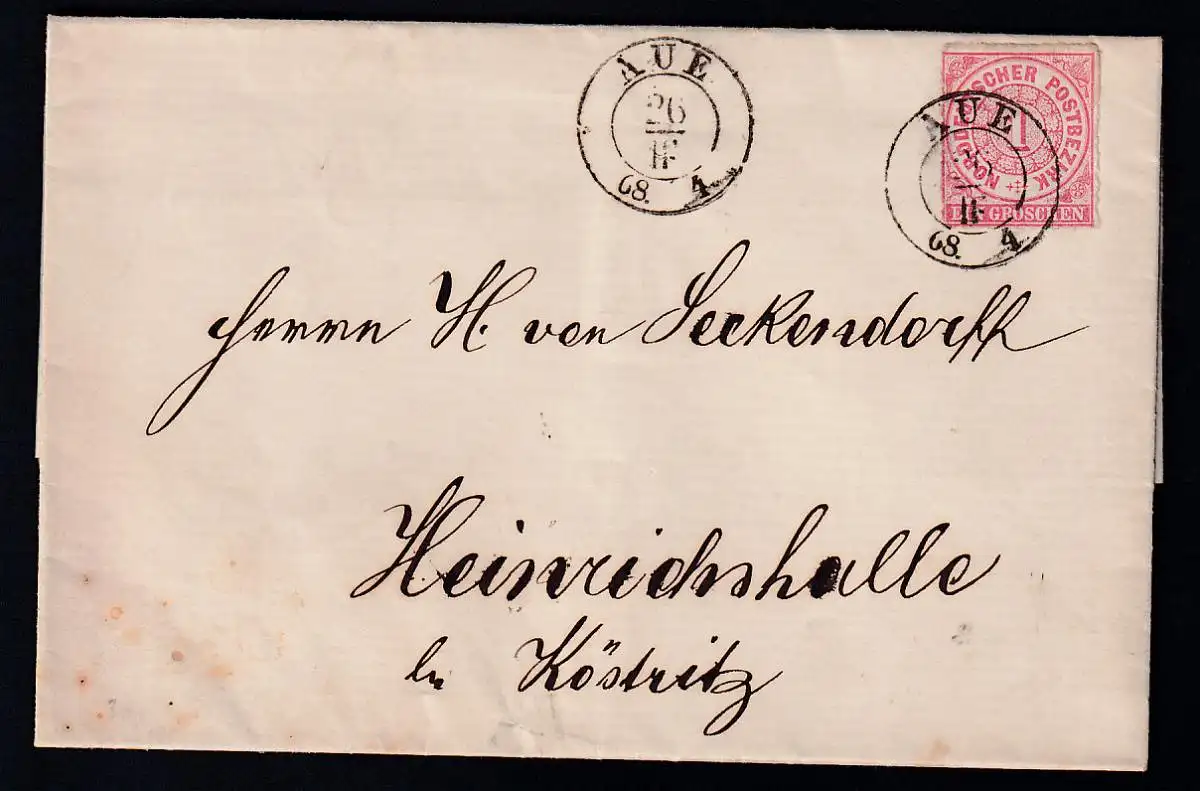 AUE
26
II
68. 4
NORDDEUTSCHER POSTBEZIRK
1
EIN GROSCHEN
AUE
26
II
68. 4
Herrn H. von Seckendorff
Heinrichshalle
bei Köstritz